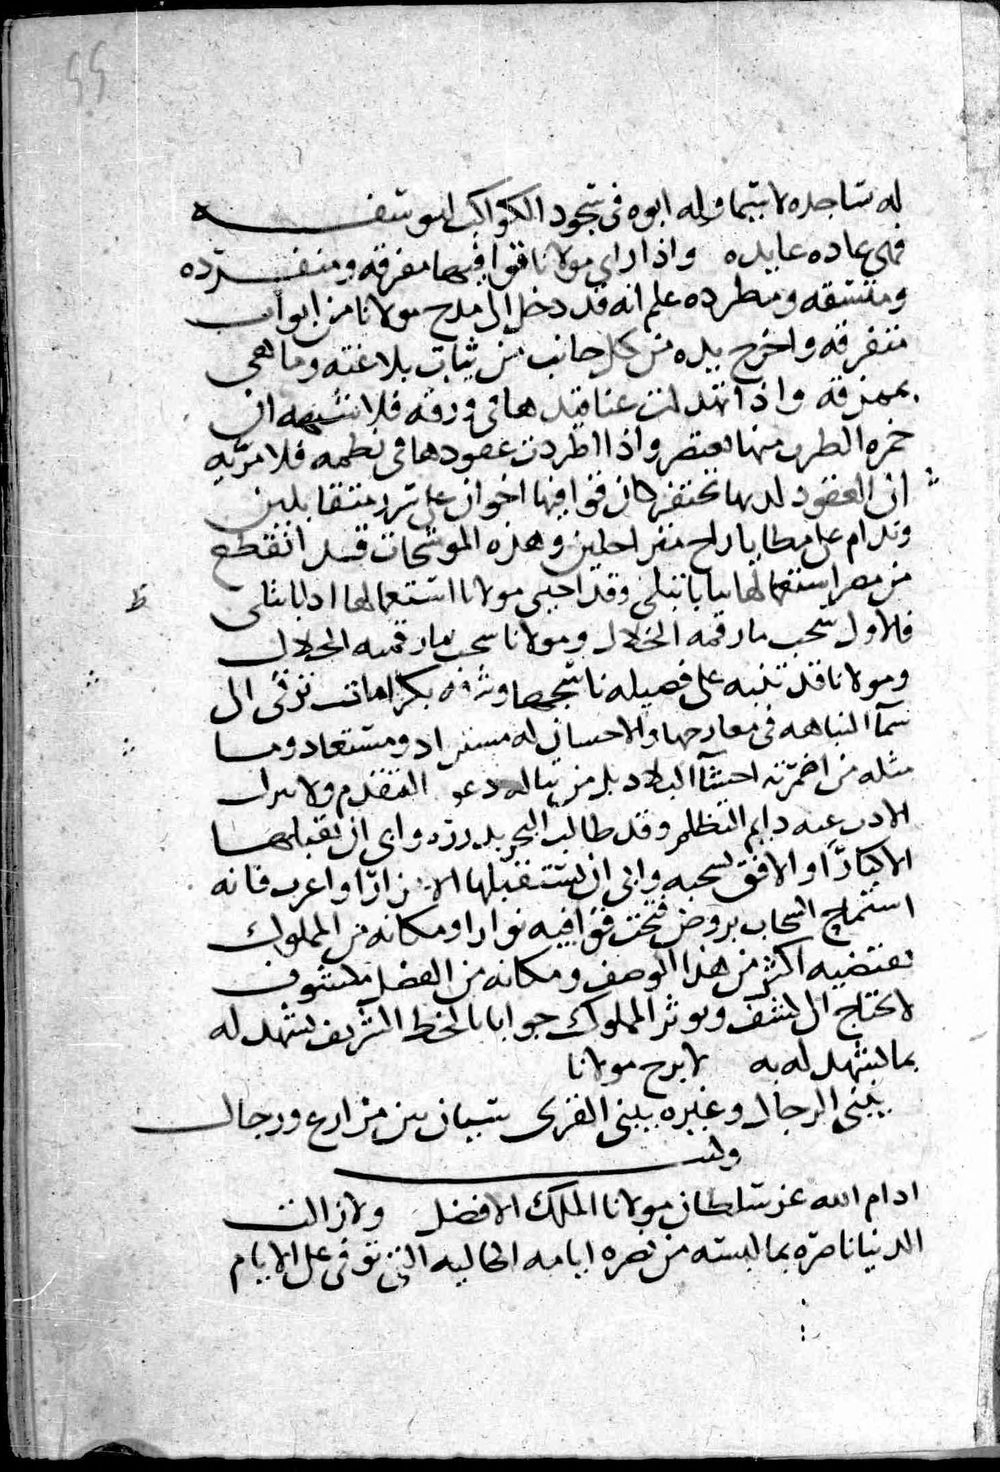 له ساجده لا سيما وله ابوه في سجود الكواكب ليوسفه
فهي عاده عايده واذا راى مولانا قوافيها مفرقه ومنفرده
ومتسقه ومطرده علم انه قد دخل الى مدح مولانا من ابواب
متفرقه واخرج يده من كل جانب من ثياب بلاغته وما هي
بممزقه واذا تهدلت عناقيدها في ورقه فلا شبهه ان
خمره الطرب منها تعتصر واذا اطردت عقودها في نظمه فلا مريه
ان العقود لديها تحتقر كان قوافيها اخوان على سرر متقابلين
وندام على مطايا راح مراحلين وهذه الموشحات قد انقطع
من مصر استعمالها بابا تبلى وقد احيى مولانا استعمالها ادابا تتلى
فالاول سحب ما رقمه الخلال ومولانا سحب ما رقمه الجلال
ومولانا قد تنبه على فضيله ناسجها وشرفه بكرامات ترقى الى
سما النباهه في معارجها والاحسان له مستزاد ومستعاد وما
مثله من اضمرته احشآ البلاد بل من يناله دعو التقدم ولا يزال
الادب عنه دايم التظلم وقد طالب البحر بدرره وابى ان يقبلها
الا كبارًا والافق بسحبه وابى ان يستقبلها الا غزارًا واعرب فانه
استماح السحاب بروض فتحت قوافيه نوارا ومكانه من المملوك
يقتضيه اكثر من هذا الوصف ومكانه من الفضل مكشوف
لا يحتاج الى كشف ويوثر المملوك جوابا بالخط الشريف يشهد له
بما يشهد له به لا برح مولانا
يبني الرجال وغيره يبني القرى شتان بين مزارع ورجال
وله
ادام الله عز سلطان مولانا الملك الافضل ولا زالت
الدنيا ناضره بما البسته من نضره ايامه الحاليه التي توفي على الايام